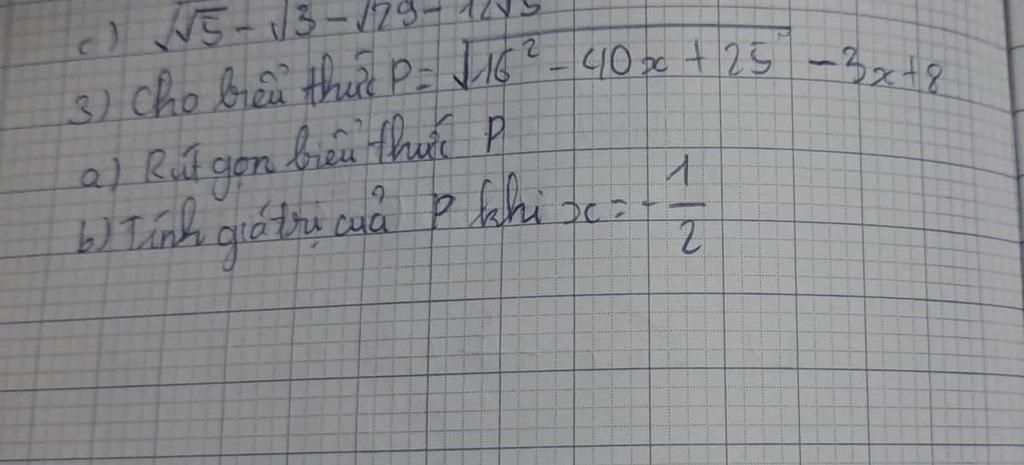 c) √√5 - √3 - √29 - 12√5
3) Cho biểu thức P = √16² - 40x + 25 - 3x + 8
a) Rút gọn biểu thức P
b) Tính giá trị của P khi x = - 1/2